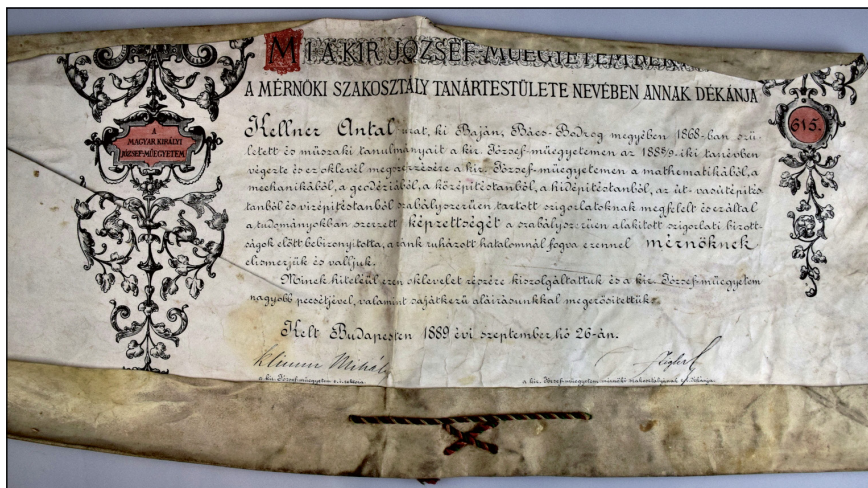 MI A KIR. JÓZSEF-MŰEGYETEM
A MÉRNÖKI SZAKOSZTÁLY TANÁRTESTÜLETE NEVÉBEN ANNAK DÉKÁNJA
A
MAGYAR KIRÁLYI
JÓZSEF-MŰEGYETEM
615.
Kellner Antal urat, ki Baján, Bács-Bodrog megyében 1868-ban szü-
letett és műszaki tanulmányait a kir. József-műegyetemen az 1888/9-iki tanévben
végezte és ez oklevél megszerzésére a kir. József-műegyetemen a mathematikából, a
mechanikából, a geodéziából, a középitéstanból, a hidépitéstanból, az út-vasútépités
tanból és vizépitéstanból szabályszerüen tartott szigorlatoknak megfelelt és ezáltal
a tudományokban szerzett képzettségét a szabályszerüen alakitott szigorlati bizott-
ságok előtt bebizonyitotta, a ránk ruházott hatalomnál fogva ezennel mérnöknek
elismerjük és valljuk.
Minek hiteléül ezen oklevelet részére kiszolgáltattuk és a kir. József-műegyetem
nagyobb pecsétjével, valamint sajátkezű aláirásunkkal megerősitettük.
Kelt Budapesten 1889 évi szeptember hó 26-án.
Klimm Mihály
a kir. József-műegyetem e. i. rektora.
a kir. József-műegyetem mérnöki szakosztályának e. i. dékánja.